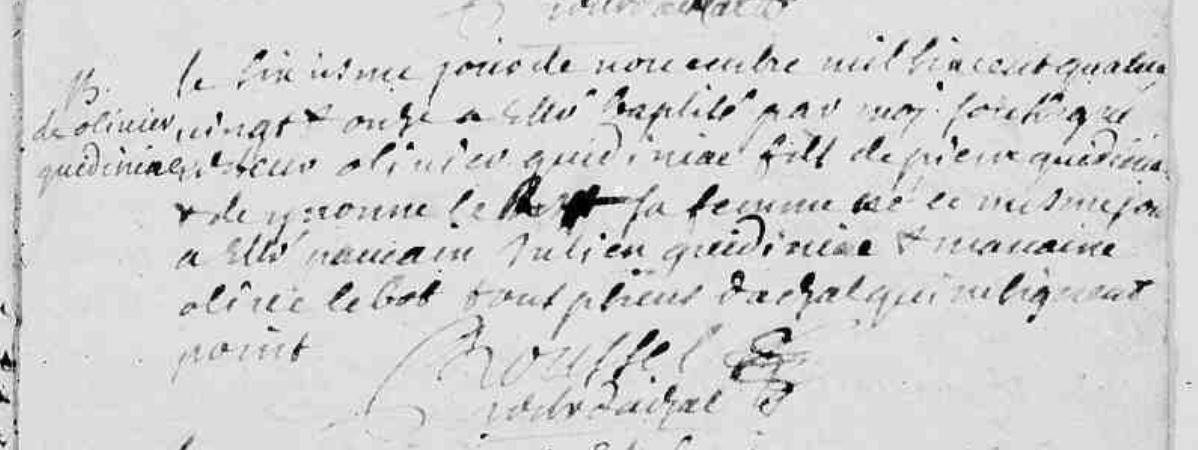 B.
de olivier
quidiniac
le sixiesme jour de novembre mil six cent quatre
vingt & onze a esté baptisé par moy soubsigné
recteur olivier quidiniac fils de pierre quidiniac
& de yvonne le sa femme né le mesme jour
a esté parrain Julien quidiniac & maraine
olive le bot tous plsiens d'arzal qui ne signent
point
Roussel
rectr d'arzal